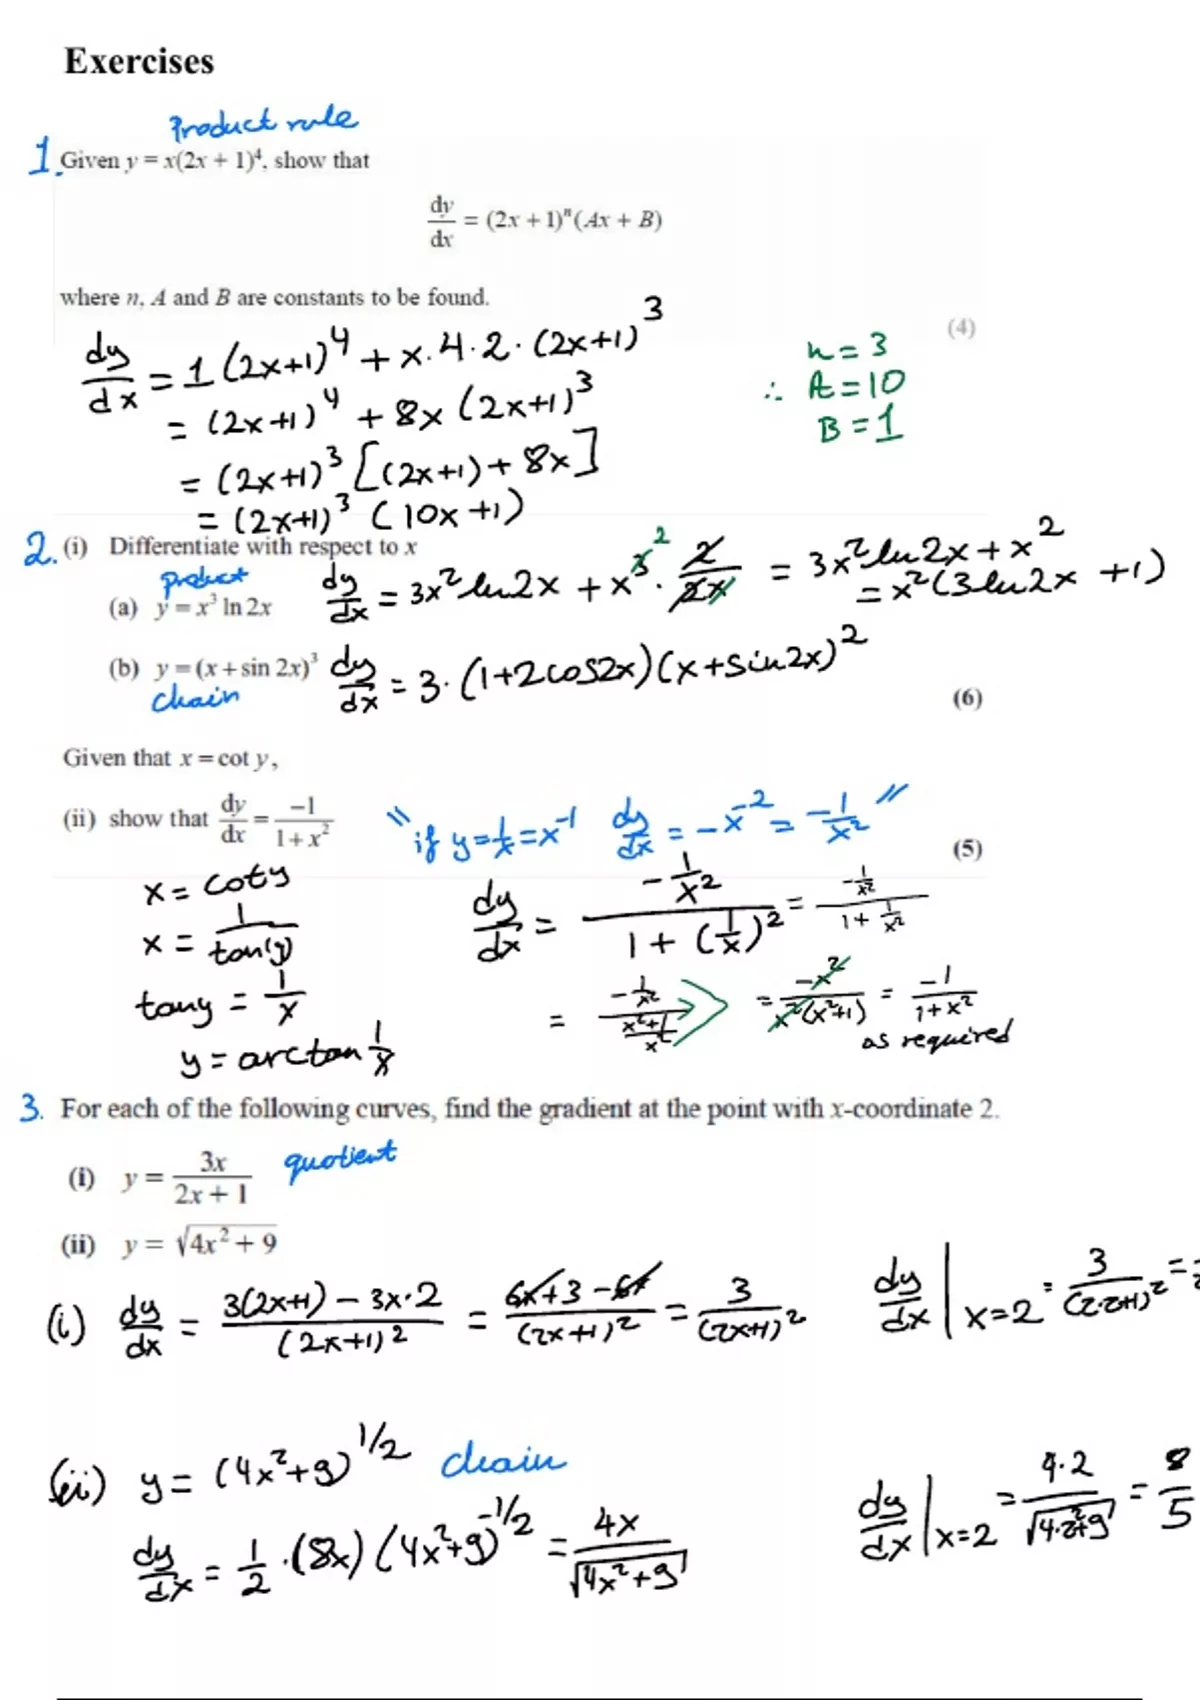 Exercises
Product rule
1. Given y = x(2x + 1)⁴, show that
dy/dx = (2x + 1)ⁿ(Ax + B)
where n, A and B are constants to be found.
(4)
dy/dx = 1(2x+1)⁴ + x·4·2·(2x+1)³
= (2x+1)⁴ + 8x(2x+1)³
= (2x+1)³[(2x+1)+8x]
= (2x+1)³(10x+1)
n=3
∴ A=10
B=1
2. (i) Differentiate with respect to x
product
(a) y = x³ ln 2x
dy/dx = 3x² ln2x + x³² · 2/2x = 3x² ln2x + x²
= x²(3ln2x +1)
(b) y = (x + sin 2x)³
dy/dx = 3·(1+2cos2x)(x+sin2x)²
chain
(6)
Given that x = cot y,
(ii) show that dy/dx = −1/(1 + x²)
"if y=1/x=x⁻¹ dy/dx = −x⁻² = −1/x²"
(5)
x = coty
x = 1/tan(y)
tany = 1/x
y = arctan 1/x
dy/dx = (−1/x²)/(1+(1/x)²) = (−1/x²)/(1+1/x²)
= (−1/x²)/((x²+1)/x²) = −x²/(x²(x²+1)) = −1/(1+x²)
as required
3. For each of the following curves, find the gradient at the point with x-coordinate 2.
(i) y = 3x/(2x + 1) quotient
(ii) y = √(4x² + 9)
(i) dy/dx = (3(2x+1) − 3x·2)/(2x+1)² = (6x+3−6x)/(2x+1)² = 3/(2x+1)²
dy/dx | x=2 = 3/(2·2+1)² =
(ii) y = (4x²+9)^1/2 chain
dy/dx = 1/2·(8x)(4x²+9)^−1/2 = 4x/√(4x²+9)
dy/dx | x=2 = 4·2/√(4·2²+9) = 8/5